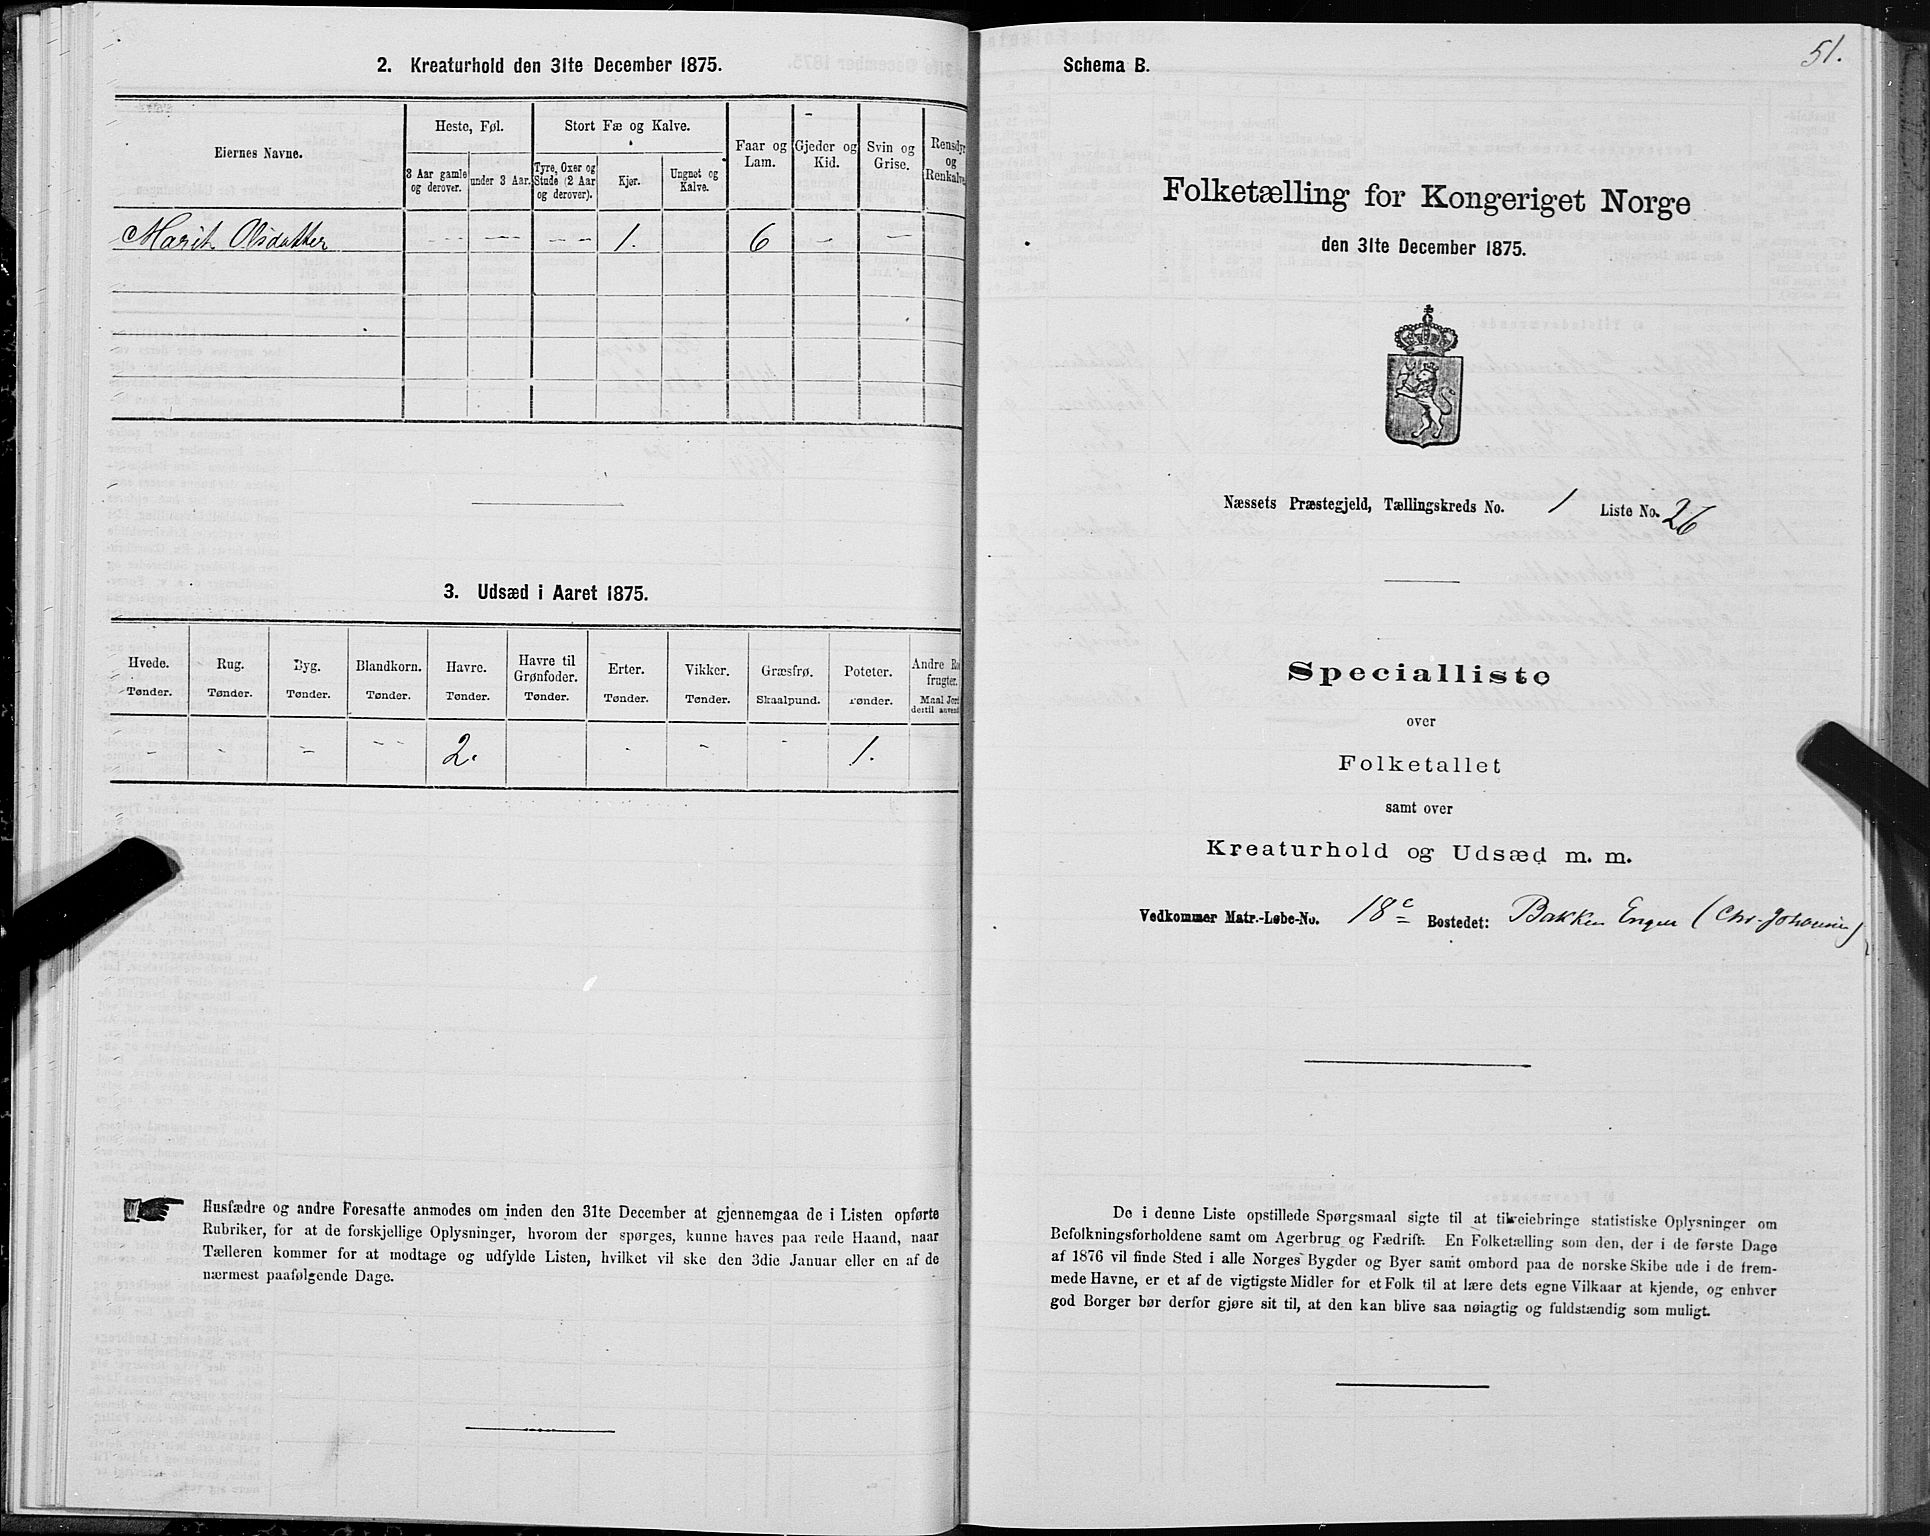 2. Kreaturhold den 31te December 1875.
Eiernes Navne.
Heste, Føl.
Stort Fæ og Kalve.
3 Aar gamle og derover.
under 3 Aar.
Tyre, Oxer og Stude (2 Aar og derover).
Kjør.
Ungnøt og Kalve.
Faar og Lam.
Gjeder og Kid.
Svin og Grise.
Rensdyr og Renkalve.
Marit Olsdatter - - - - - - - - 1. 6 - -
3. Udsæd i Aaret 1875.
Hvede. Rug. Byg. Blandkorn. Havre. Havre til Grønfoder. Erter. Vikker. Græsfrø. Poteter. Andre Ro frugter.
Tønder. Tønder. Tønder. Tønder. Tønder. Tønder. Tønder. Tønder. Skaalpund. Tønder. Maal Jord dertil anvend
- - - - - 2. - - - 1.
Husfædre og andre Foresatte anmodes om inden den 31te December at gjennemgaa de i Listen opførte
Rubriker, for at de forskjellige Oplysninger, hvorom der spørges, kunne haves paa rede Haand, naar
Tælleren kommer for at modtage og udfylde Listen, hvilket vil ske den 3die Januar eller en af de
nærmest paafølgende Dage.
51.
Schema B.
Folketælling for Kongeriget Norge
den 31te December 1875.
Næssets Præstegjeld, Tællingskreds No. 1 Liste No. 26
Specialliste
over
Folketallet
samt over
Kreaturhold og Udsæd m. m.
Vedkommer Matr.-Løbe-No. 18c Bostedet: Bakken Engen (Chr. Johansen)
De i denne Liste opstillede Spørgsmaal sigte til at tilveiebringe statistiske Oplysninger om
Befolkningsforholdene samt om Agerbrug og Fædrift. En Folketælling som den, der i de første Dage
af 1876 vil finde Sted i alle Norges Bygder og Byer samt ombord paa de norske Skibe ude i de frem-
mede Havne, er et af de vigtigste Midler for et Folk til at lære dets egne Vilkaar at kjende, og enhver
god Borger bør derfor gjøre sit til, at den kan blive saa nøiagtig og fuldstændig som muligt.